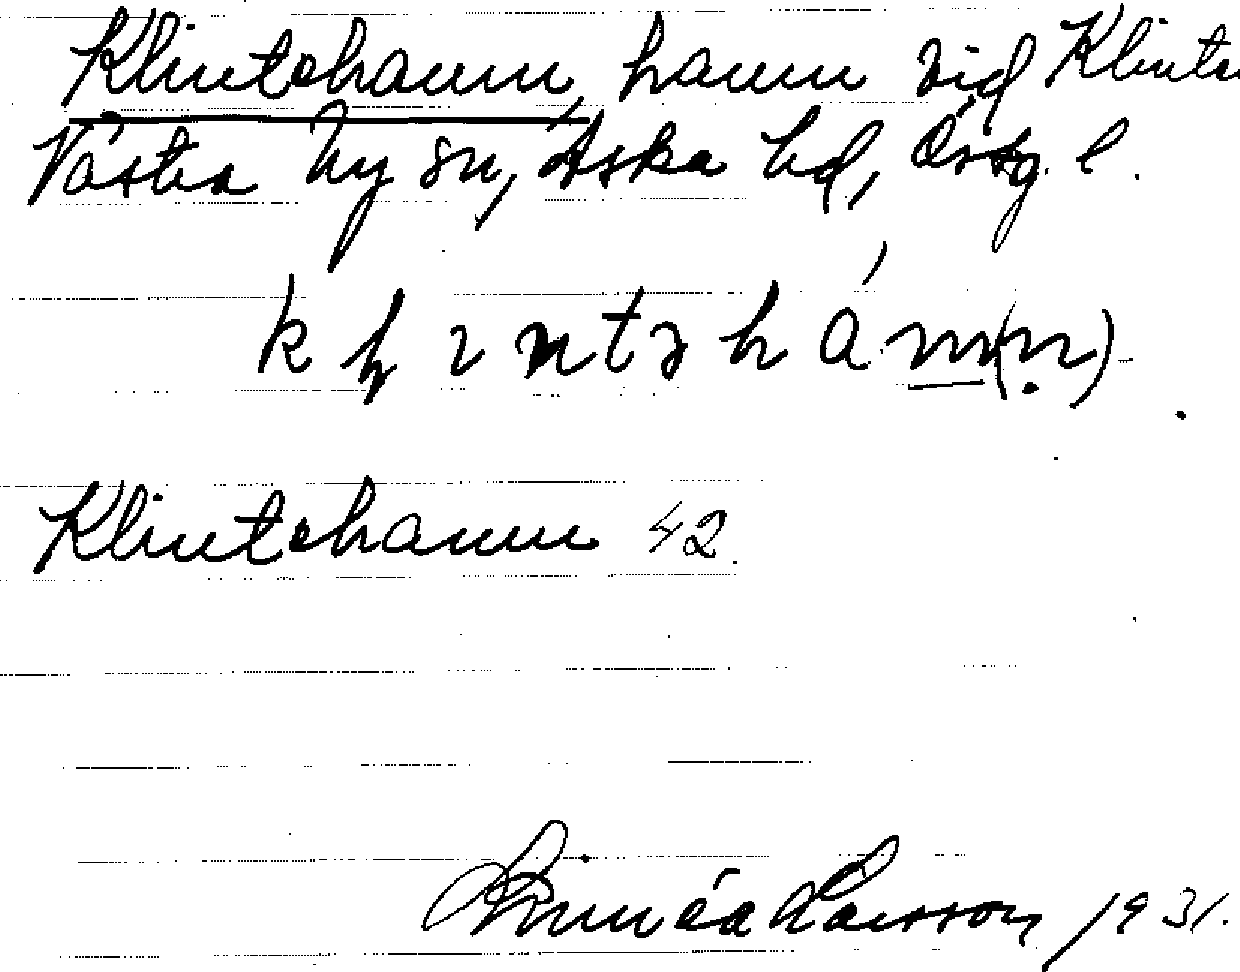 Klintehamn, hamn vid Klinte
Västra Ny sn, Aska hd, Östg. l.
Klintehamn 42.
Linnéa Larsson 1931.